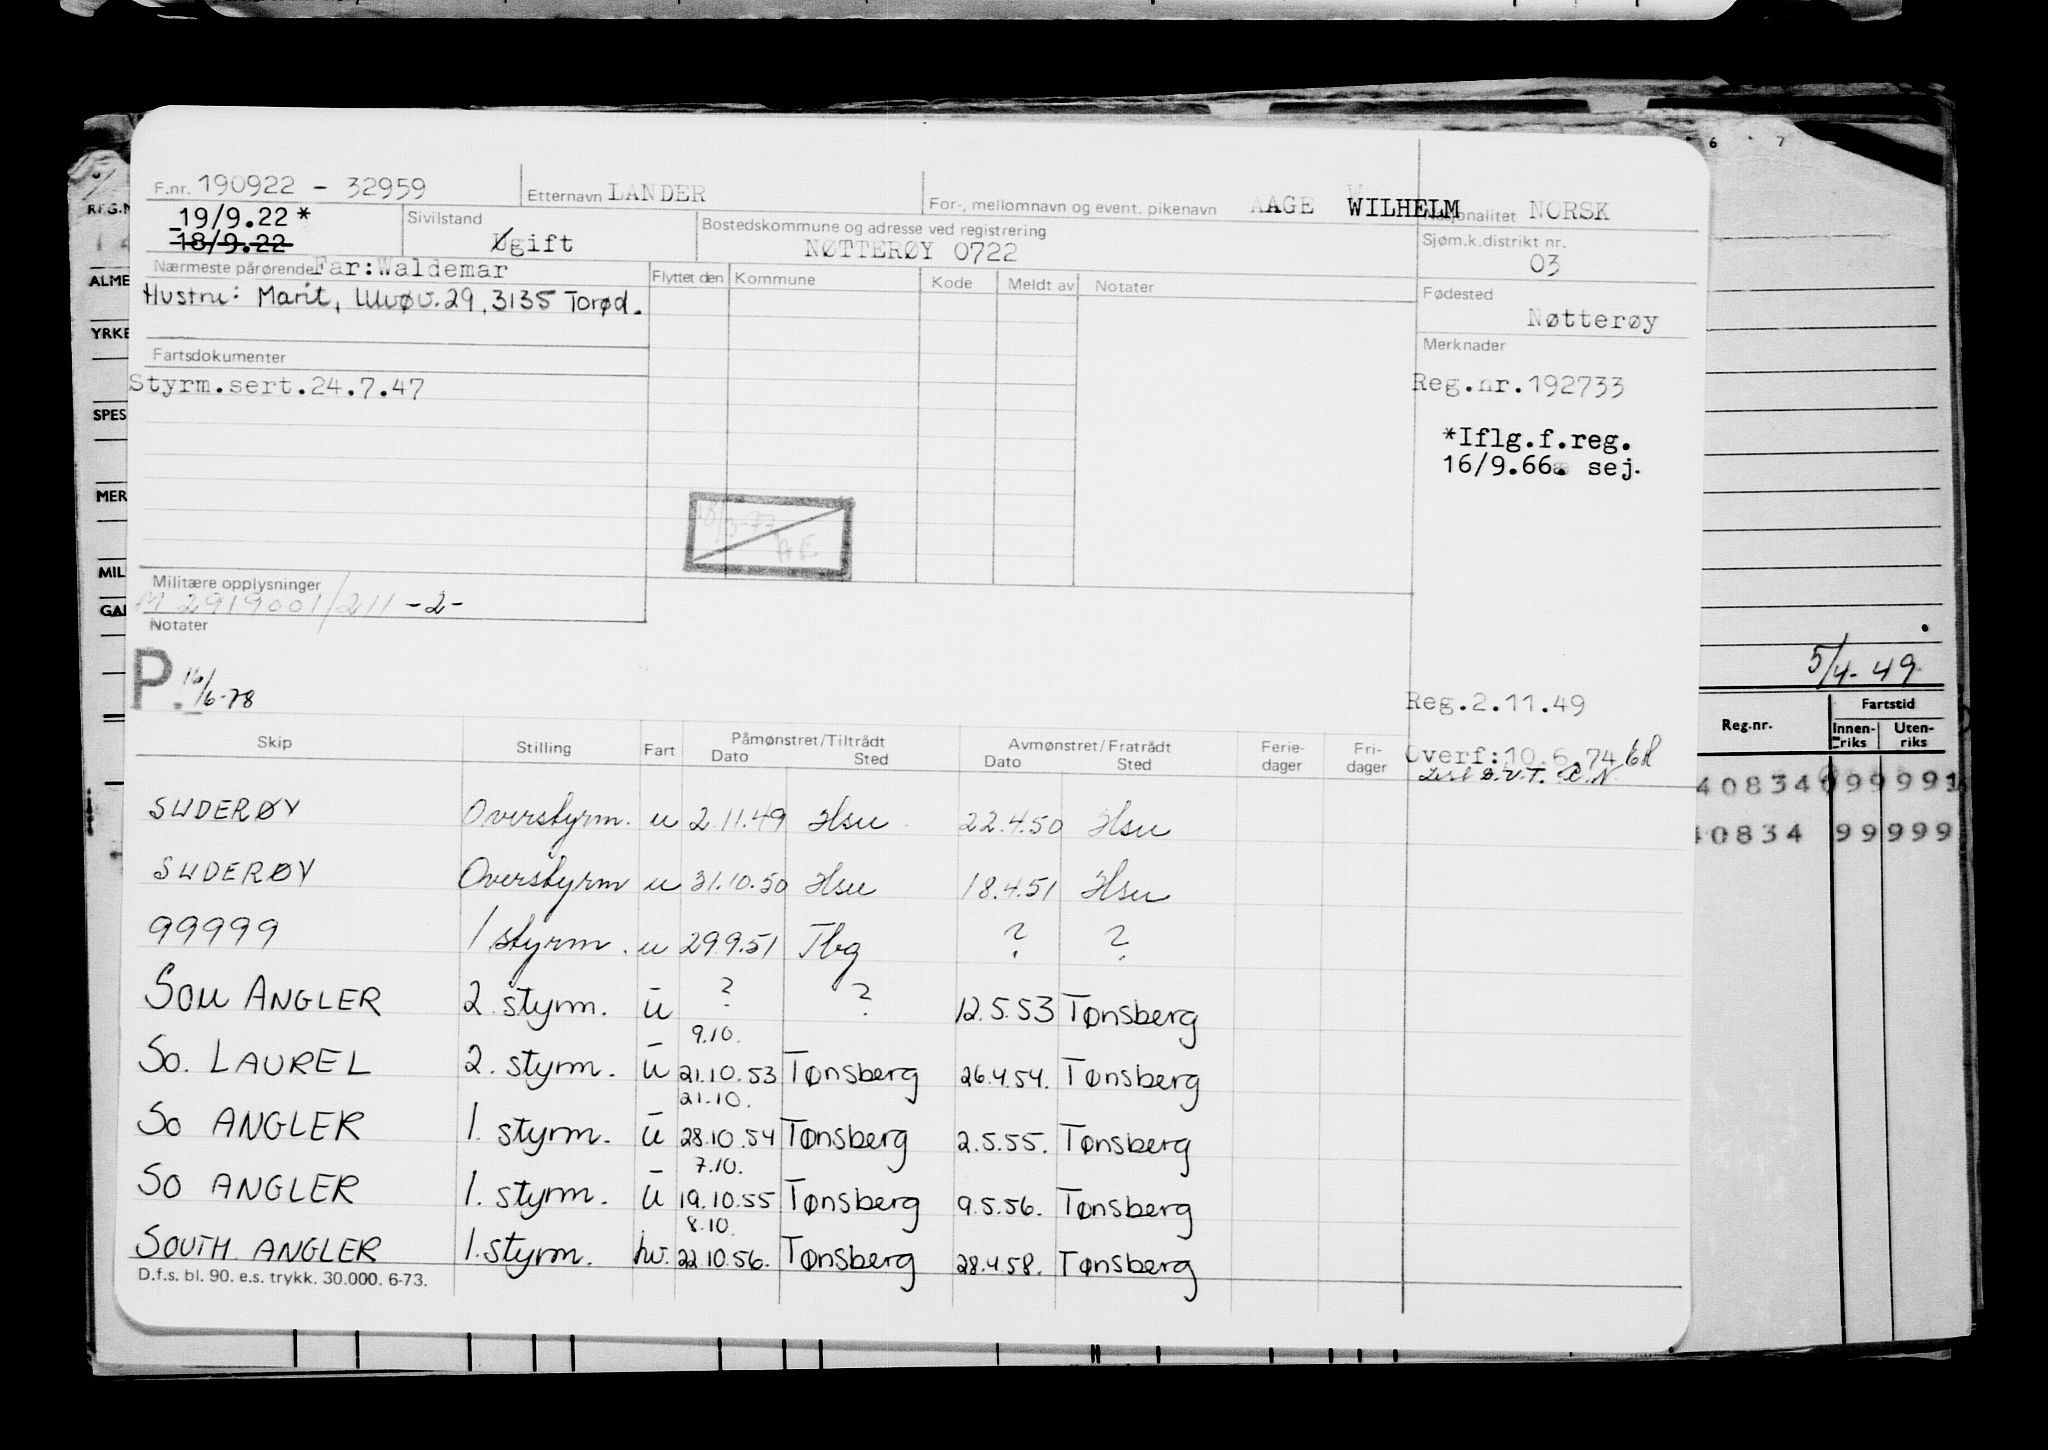 F.nr. 190922 - 32959 Etternavn LANDER For-, mellomnavn og event. pikenavn AAGE WILHELM Nasjonalitet NORSK
19/9.22 * Sivilstand Ugift Bostedskommune og adresse ved registrering Sjøm.k.distrikt nr.
18/9.22 NØTTERØY 0722 03
Nærmeste pårørende Far:Waldemar Flyttet den Kommune Kode Meldt av Notater Fødested
Hustru: Marit, Ulvøv.29, 3135 Torød. Nøtterøy
Fartsdokumenter Merknader
Styrm.sert.24.7.47 Reg.nr.192733
*Iflg.f.reg.
16/9.66. sej.
18/3-77
AE
Militære opplysninger
M 2919001/211 -2-
Notater
P. 16/6-78
Reg.2.11.49
Overf:10.6.74
Skip Stilling Fart Påmønstret/Tiltrådt Dato Sted Avmønstret/Fratrådt Dato Sted Ferie-dager Fri-dager
SUDERØY Overstyrm. u 2.11.49 Hsu 22.4.50 Hsu
SUDERØY Overstyrm u 31.10.50 Hsu 18.4.51 Hsu
99999 1 styrm. u 29.9.51 Tbg ? ?
SOU ANGLER 2. styrm. u ? ? 12.5.53 Tønsberg
9.10.
SO. LAUREL 2. styrm. u 21.10.53 Tønsberg 26.4.54. Tønsberg
21.10.
SO ANGLER 1. styrm. u 28.10.54 Tønsberg 2.5.55. Tønsberg
7.10.
SO ANGLER 1. styrm. u 19.10.55 Tønsberg 9.5.56. Tønsberg
8.10.
SOUTH ANGLER 1. styrm. hv. 22.10.56. Tønsberg 28.4.58. Tønsberg
D.f.s. bl. 90. e.s. trykk. 30.000. 6-73.
REG.N
ALME
YRKE
SPES
MER
MIL
GA
6 7
5/4-49
Reg.nr. Fartstid
Innen-riks Uten-riks
40834 099991
40834 99999